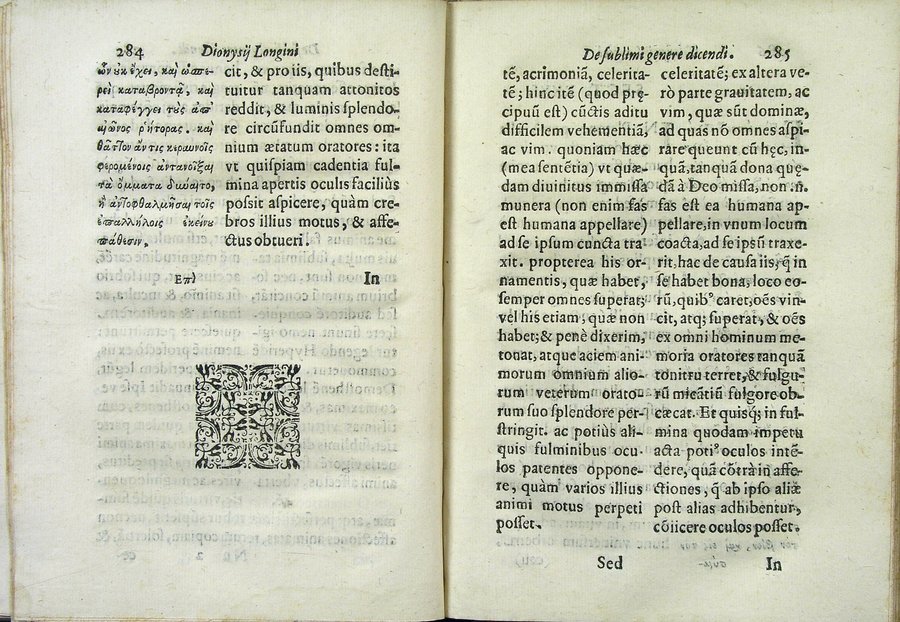 284 Dionysij Longini
ὧν οὐκ ἔχει, καὶ ὡσπε-
ρεὶ καταβροντᾷ, καὶ
καταφέγγει τοὺς ἀπ'
αἰῶνος ῥήτορας. καὶ
θᾶττον ἄν τις κεραυνοῖς
φερομένοις ἀντανοῖξαι
τὰ ὄμματα δύναιτο,
ἢ ἀντοφθαλμῆσαι τοῖς
ἐπαλλήλοις ἐκείνου
πάθεσιν.
Επὶ
cit, & pro iis, quibus desti-
tuitur tanquam attonitos
reddit, & luminis splendo-
re circūfundit omnes om-
nium ætatum oratores: ita
vt quispiam cadentia ful-
mina apertis oculis facilius
possit aspicere, quàm cre-
bros illius motus, & affe-
ctus obtueri.
In
De sublimi genere dicendi. 285
tē, acrimoniā, celerita-
tē; hinc itē (quod prę-
cipuū est) cūctis aditu
difficilem vehementiā,
ac vim. quoniam hæc
(mea sentētia) vt quæ-
dam diuinitus immissa
munera (non enim fas
est humana appellare)
ad se ipsum cuncta tra
xit. propterea his or-
namentis, quæ habet,
semper omnes superat;
vel his etiam; quæ non
habet;& penè dixerim,
tonat, atque aciem ani-
morum omnium alio-
rum veterum orato-
rum suo splendore per-
stringit. ac potiùs ali-
quis fulminibus ocu-
los patentes oppone-
re, quàm varios illius
animi motus perpeti
posset.
Sed
celeritatē; ex altera ve-
rò parte grauitatem, ac
vim, quæ sūt dominæ,
ad quas nō omnes aspi-
rare queunt cū hęc, in-
quā, tanquā dona quę-
dā à Deo missa, non .n.
fas est ea humana ap-
pellare, in vnum locum
coacta, ad se ipsū traxe-
rit, hac de causa iis, q̄ in
se habet bona, loco eo-
rū, quibꝰ caret, oēs vin-
cit, atq; superat, & oēs
ex omni hominum me-
moria oratores tanquā
tonitru terret, & fulgu-
rū micātiū fulgore ob-
cæcat. Et quisq; in ful-
mina quodam impetu
acta potiꝰ oculos intē-
dere, quā cōtrà in affe-
ctiones, q̄ ab ipso aliæ
post alias adhibentur,
cōiicere oculos posset.
In